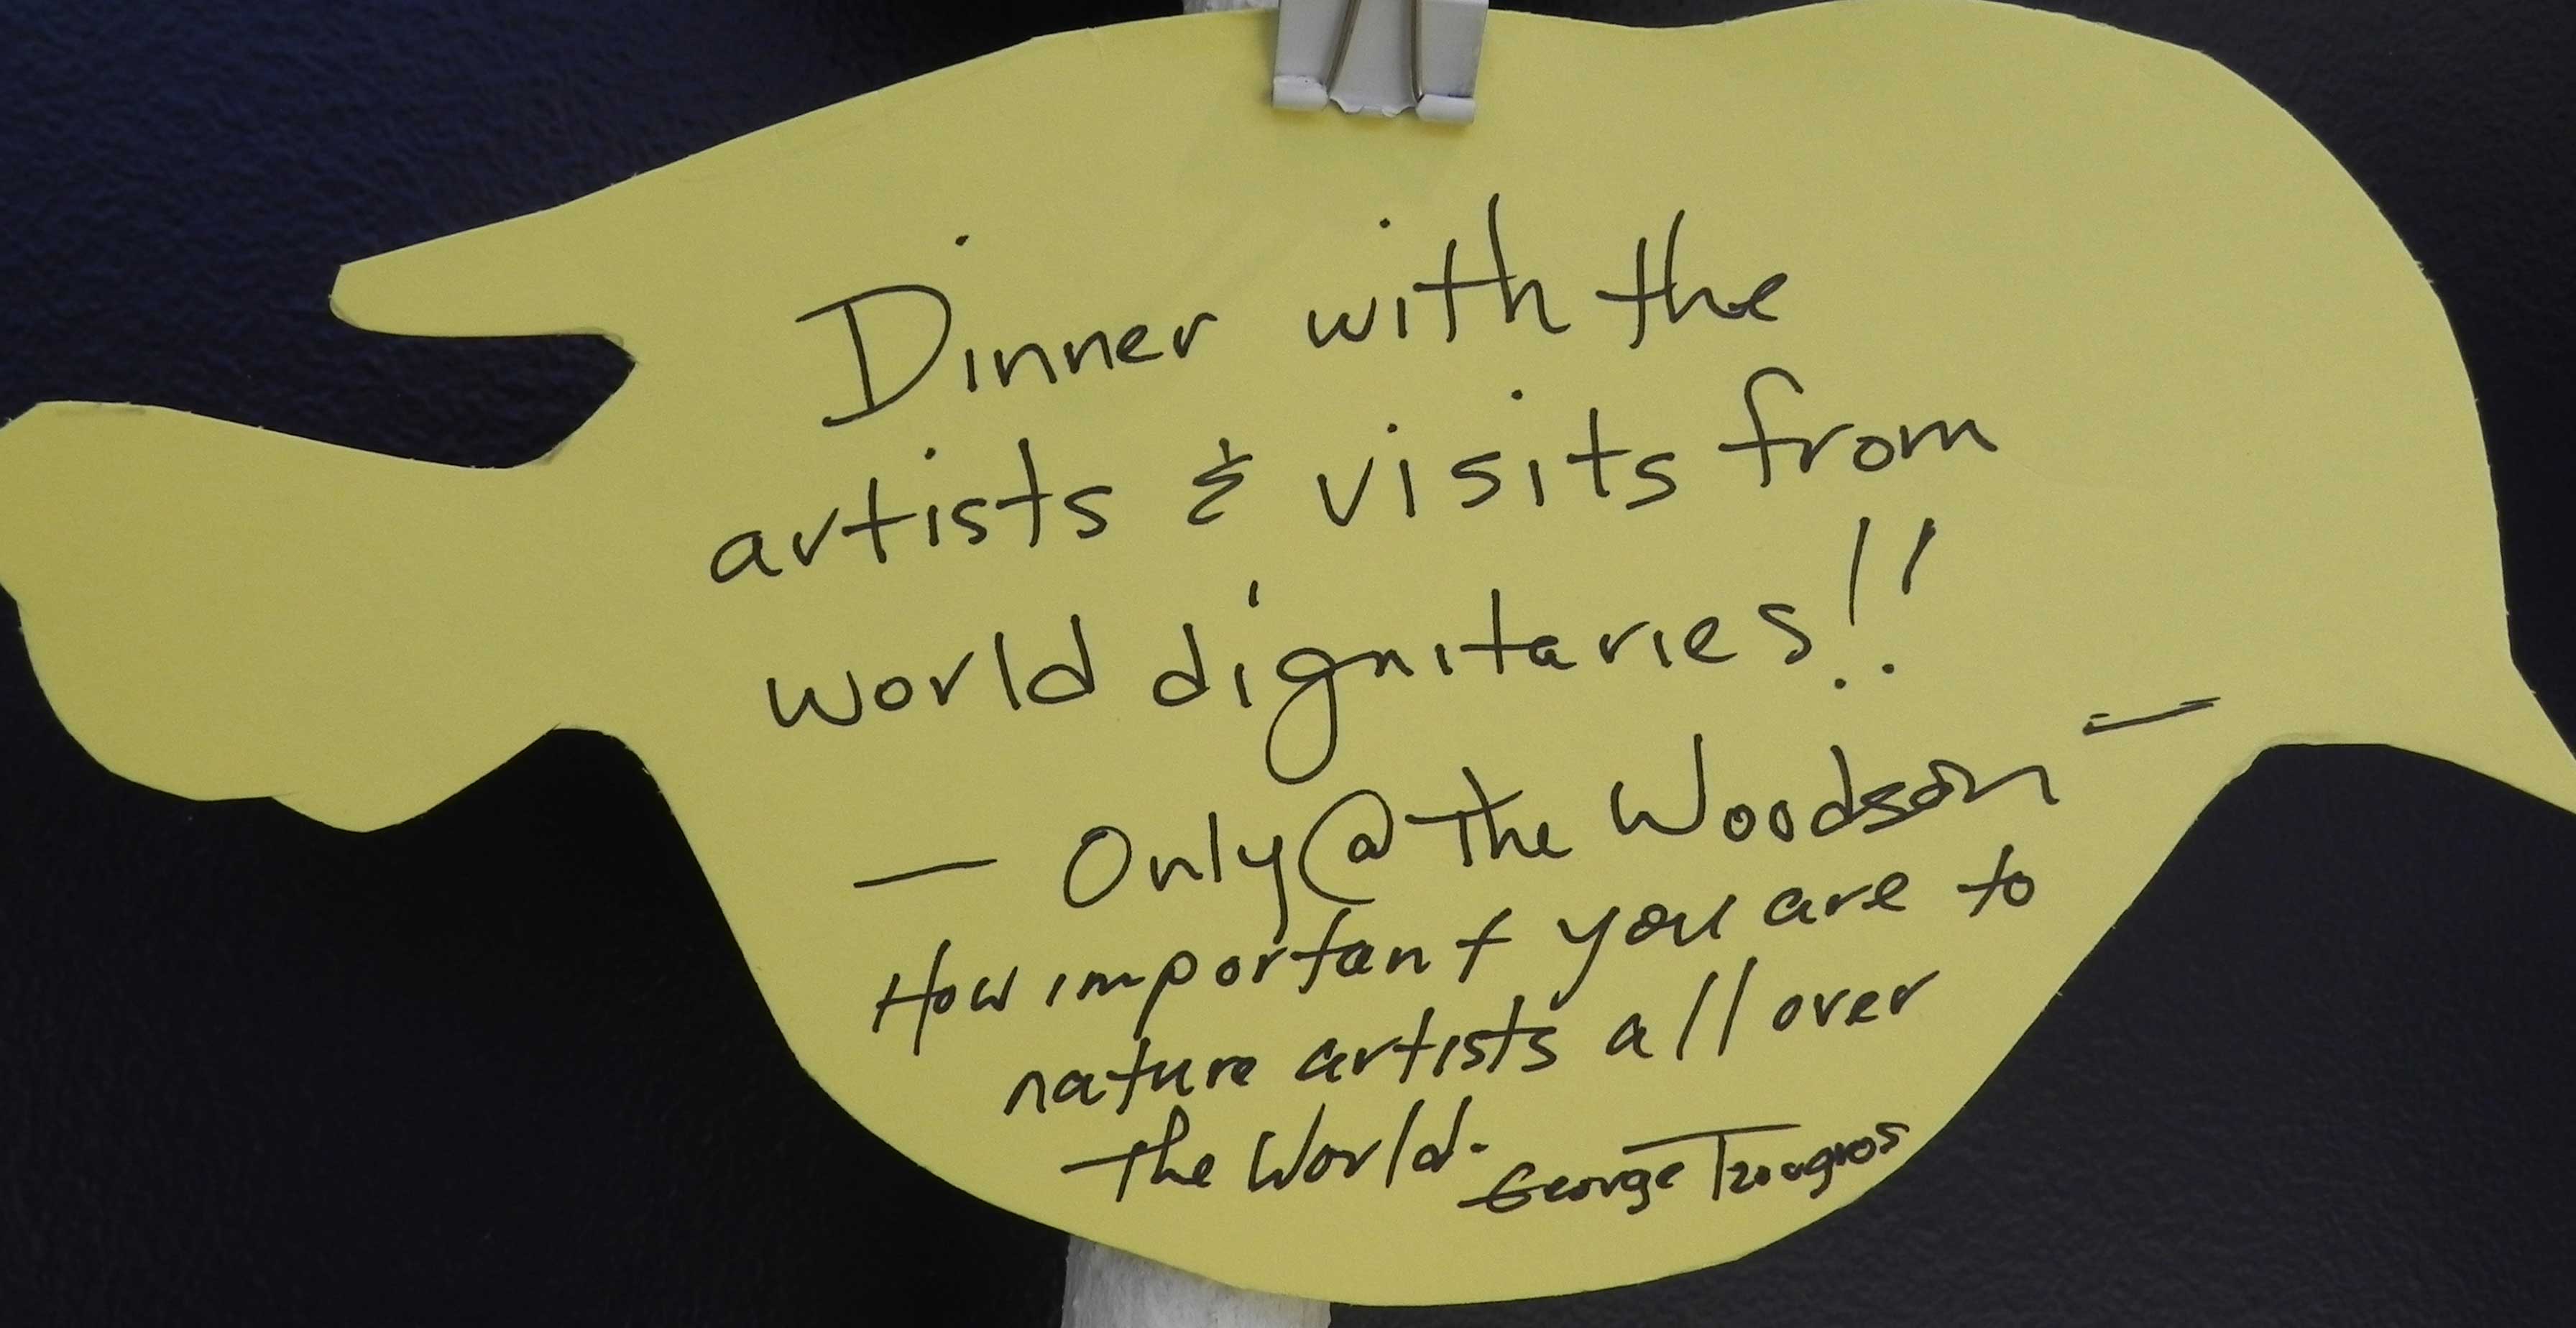 Dinner with the
artists & visits from
world dignitaries!!
— Only @ The Woodson —
How important you are to
nature artists all over
the World.
George Tzougros